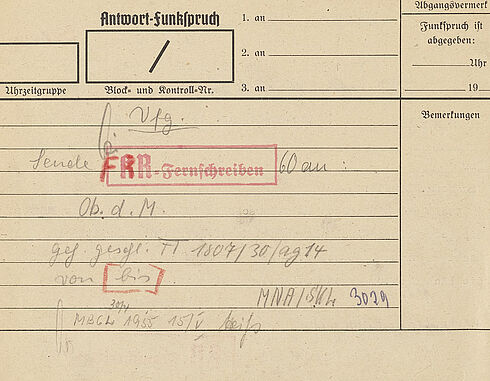 Abgangsvermerk
Antwort-Funkspruch
1. an
Funkspruch ist
abgegeben:
/
2. an
Uhr
Uhrzeitgruppe
Block- und Kontroll-Nr.
3. an
19
Bemerkungen
Vfg.
Sende FRR-Fernschreiben 60 an:
Ob. d. M.
1807/30/ag 14
von bis
MNA/SKL 3029
1955 15/V